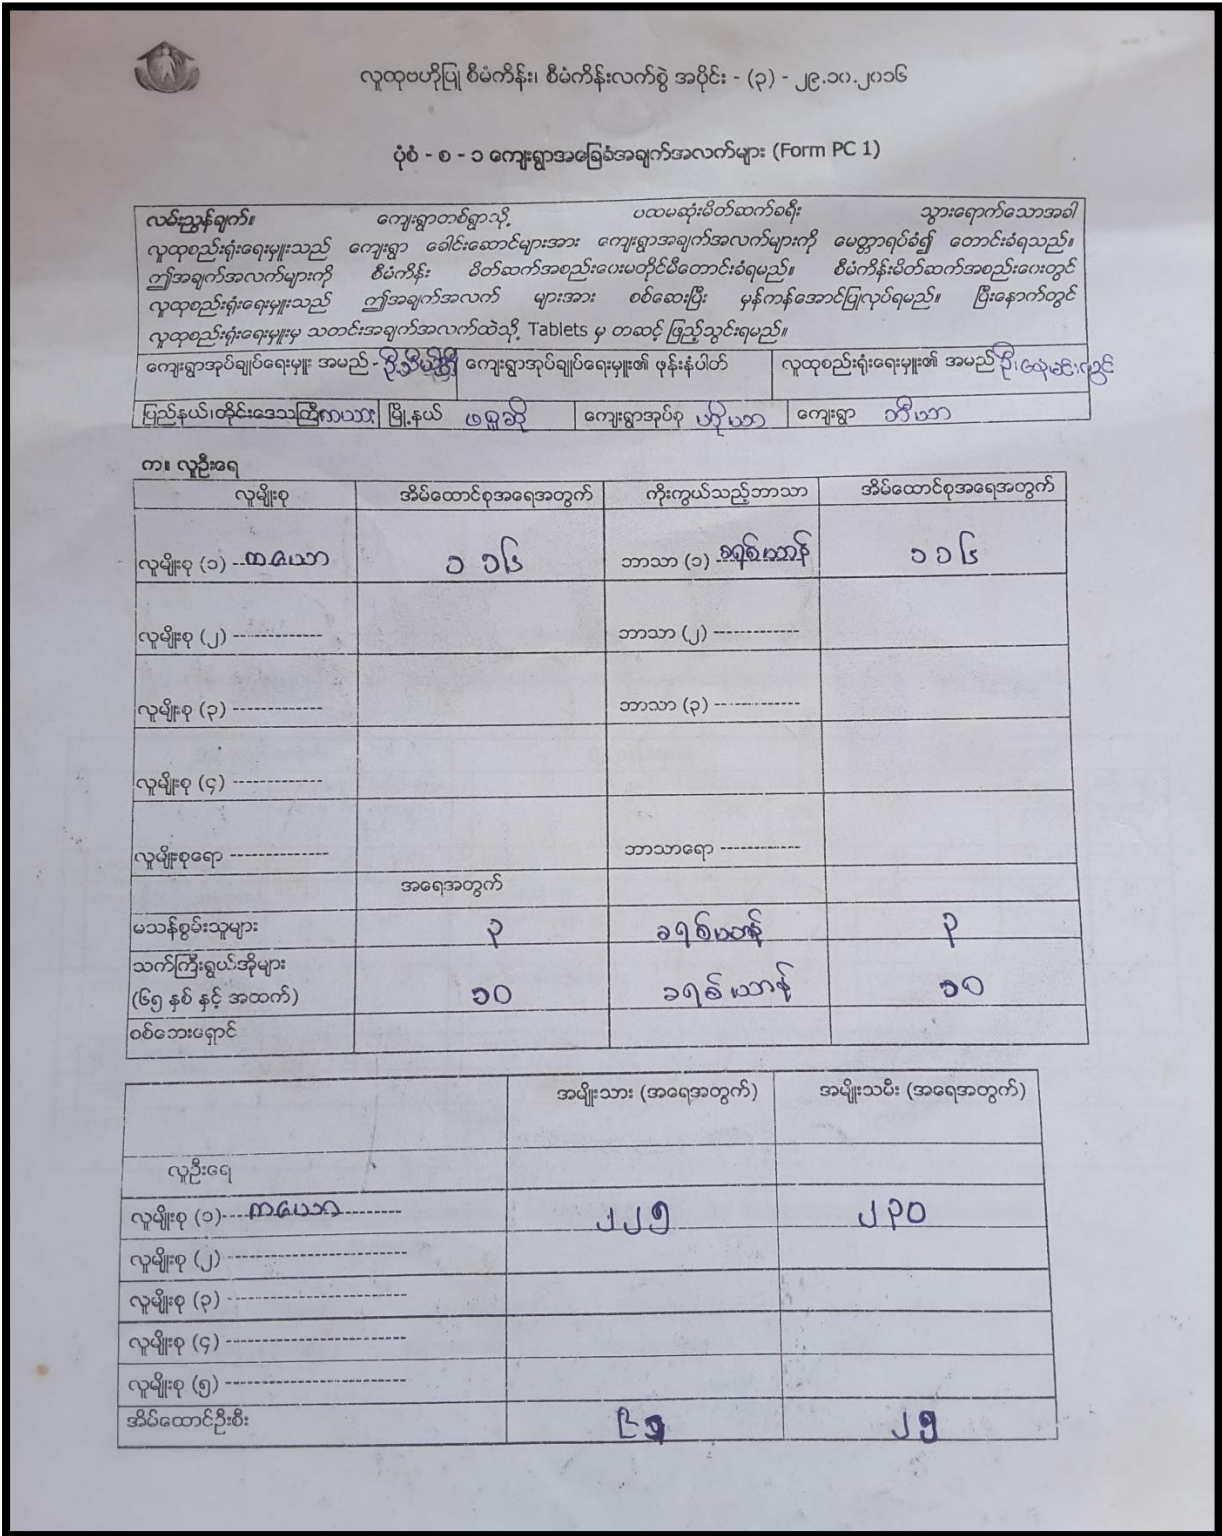 လူထုဗဟိုပြု စီမံကိန်း၊ စီမံကိန်းလက်စွဲ အပိုင်း - (၃) - ၂၉.၁၀.၂၀၁၆
ပုံစံ - စ - ၁ ကျေးရွာအခြေခံအချက်အလက်များ (Form PC 1)
လမ်းညွှန်ချက်။ ကျေးရွာတစ်ရွာသို့ ပထမဆုံးမိတ်ဆက်ခရီး သွားရောက်သောအခါ
လူထုစည်းရုံးရေးမှူးသည် ကျေးရွာ ခေါင်းဆောင်များအား ကျေးရွာအချက်အလက်များကို မေတ္တာရပ်ခံ၍ တောင်းခံရသည်။
ဤအချက်အလက်များကို စီမံကိန်း မိတ်ဆက်အစည်းဝေးမတိုင်မီတောင်းခံရမည်။ စီမံကိန်းမိတ်ဆက်အစည်းဝေးတွင်
လူထုစည်းရုံးရေးမှူးသည် ဤအချက်အလက် များအား စစ်ဆေးပြီး မှန်ကန်အောင်ပြုလုပ်ရမည်။ ပြီးနောက်တွင်
လူထုစည်းရုံးရေးမှူးမှ သတင်းအချက်အလက်ထဲသို့ Tablets မှ တဆင့် ဖြည့်သွင်းရမည်။
ကျေးရွာအုပ်ချုပ်ရေးမှူး အမည် - ကျေးရွာအုပ်ချုပ်ရေးမှူး၏ ဖုန်းနံပါတ် လူထုစည်းရုံးရေးမှူး၏ အမည်
ပြည်နယ်၊တိုင်းဒေသကြီး ကယား မြို့နယ် ဖရူဆို ကျေးရွာအုပ်စု ဟိုယာ ကျေးရွာ ဘီယာ
က။ လူဦးရေ
လူမျိုးစု အိမ်ထောင်စုအရေအတွက် ကိုးကွယ်သည့်ဘာသာ အိမ်ထောင်စုအရေအတွက်
လူမျိုးစု (၁) -- ကယော ၁၁၆ ဘာသာ (၁) - ခရစ်ယာန် ၁၁၆
လူမျိုးစု (၂) -------------- ဘာသာ (၂) -------------
လူမျိုးစု (၃) -------------- ဘာသာ (၃) -------------
လူမျိုးစု (၄) --------------
လူမျိုးစုရော -------------- ဘာသာရော -------------
အရေအတွက်
မသန်စွမ်းသူများ ၃ ခရစ်ယာန် ၃
သက်ကြီးရွယ်အိုများ
(၆၅ နှစ် နှင့် အထက်) ၁၀ ခရစ်ယာန် ၁၀
စစ်ဘေးရှောင်
အမျိုးသား (အရေအတွက်) အမျိုးသမီး (အရေအတွက်)
လူဦးရေ
လူမျိုးစု (၁)---- ကယော -------- ၂၂၅ ၂၃၀
လူမျိုးစု (၂) --------------------------
လူမျိုးစု (၃) --------------------------
လူမျိုးစု (၄) --------------------------
လူမျိုးစု (၅) --------------------------
အိမ်ထောင်ဦးစီး ၂၅